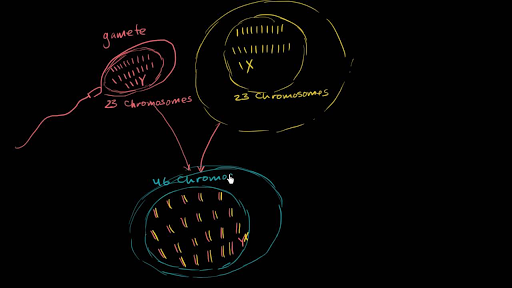 gamete
Y
23 Chromosomes
X
23 Chromosomes
46 Chromos
Y X